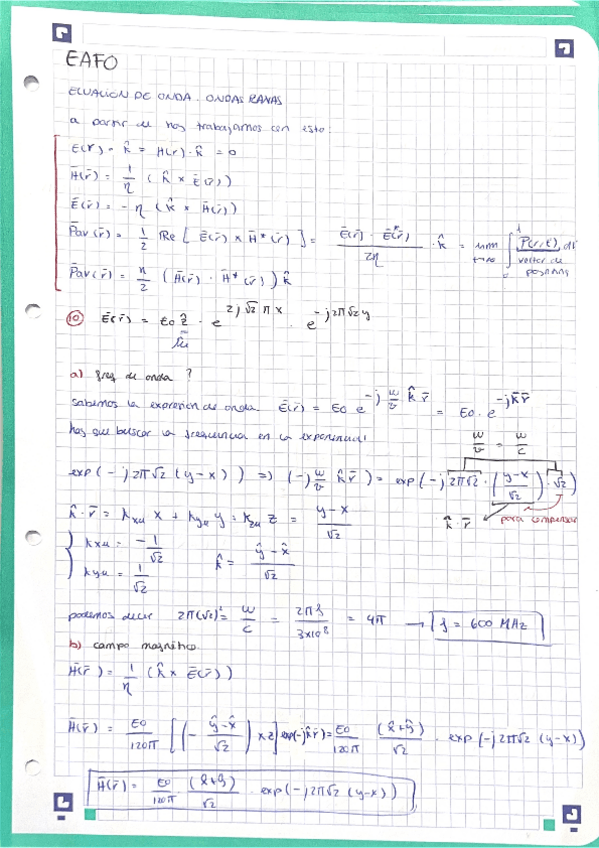 EAFO
ECUACION DE ONDA. ONDAS PLANAS
a partir de hoy trabajamos con esto:
E(r) · k̂ = H(r) · k̂ = 0
H̄(r̄) = 1/η (k̂ × Ē(r̄))
Ē(r̄) = -η (k̂ × H̄(r̄))
P̄av(r̄) = 1/2 Re[Ē(r̄) × H̄*(r̄)] = Ē(r̄) · Ē*(r̄) / 2η · k̂ =
P̄av(r̄) = η/2 (H̄(r̄) · H̄*(r̄)) k̂
10 Ē(r̄) = E0 ẑ · e^{2j√2πx} · e^{-j2π√2y}
a) freq de onda ?
Sabemos la expresion de onda Ē(r̄) = E0 e^{-j w/v k̂ r̄} = E0 · e^{-j k̄ r̄}
hay que buscar la frecuencia en la exponencial w/v = w/c
exp(-j2π√2(y-x)) => (-j w/v k̂ r̄) = exp(-j 2π√2 · (y-x/√2) · √2)
k̂ · r̄ para compensar
k̂ · r̄ = kxu x + kyu y + kzu z = y-x/√2
kxu = -1/√2
kyu = 1/√2 k̂ = ŷ-x̂/√2
podemos decir 2π(√2)² = w/c = 2πf/3x10⁸ = 4π → f = 600 MHz
b) campo magnético
H̄(r̄) = 1/η (k̂ × Ē(r̄))
H̄(r̄) = E0/120π [(- ŷ-x̂/√2) × z] exp(-jk̂r̄) = E0/120π (x̂+ŷ)/√2 · exp(-j2π√2(y-x))
H̄(r̄) = E0/120π · (x̂+ŷ)/√2 · exp(-j2π√2(y-x))